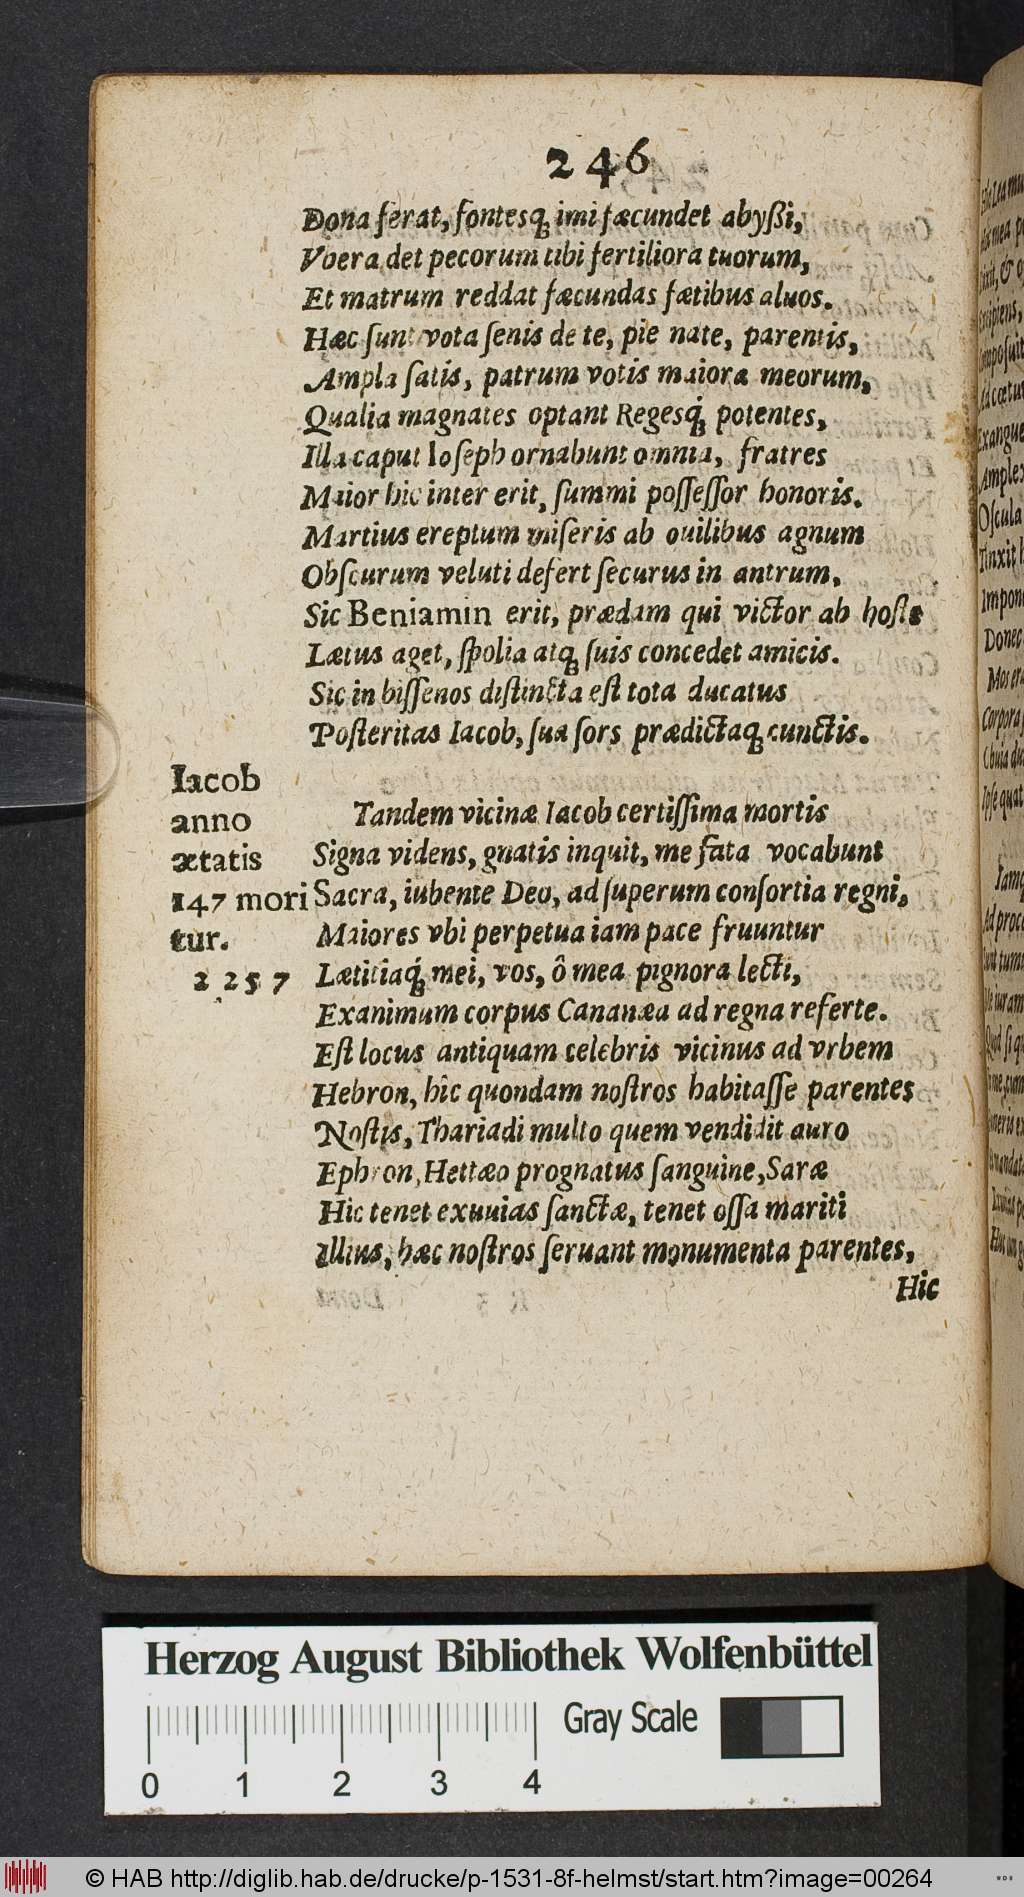 246
Dona ferat, fontesq́ imi fæcundet abyßi,
Vbera det pecorum tibi fertiliora tuorum,
Et matrum reddat fæcundas fætibus aluos.
Hæc sunt vota senis de te, pie nate, parentis,
Ampla satis, patrum votis maiora meorum,
Qualia magnates optant Regesq́ potentes,
Illa caput Ioseph ornabunt omnia, fratres
Maior hic inter erit, summi possessor honoris.
Martius ereptum miseris ab ouilibus agnum
Obscurum veluti defert securus in antrum,
Sic Beniamin erit, prædam qui victor ab hoste
Lætus aget, spolia atq́ suis concedet amicis.
Sic in bissenos distincta est tota ducatus
Posteritas Iacob, sua sors prædictaq́ cunctis.
Iacob
anno
ætatis
147 mori
tur.
2257
Tandem vicinæ Iacob certissima mortis
Signa videns, gnatis inquit, me fata vocabunt
Sacra, iubente Deo, ad superum consortia regni,
Maiores vbi perpetua iam pace fruuntur
Lætitiaq́ mei, vos, ô mea pignora lecti,
Exanimum corpus Cananæa ad regna referte.
Est locus antiquam celebris vicinus ad vrbem
Hebron, hîc quondam nostros habitasse parentes
Nostis, Thariadi multo quem vendidit auro
Ephron, Hettæo prognatus sanguine, Saræ
Hic tenet exuuias sanctæ, tenet ossa mariti
Illius, hæc nostros seruant monumenta parentes,
Hic
Herzog August Bibliothek Wolfenbüttel
Gray Scale
0 1 2 3 4
© HAB http://diglib.hab.de/drucke/p-1531-8f-helmst/start.htm?image=00264